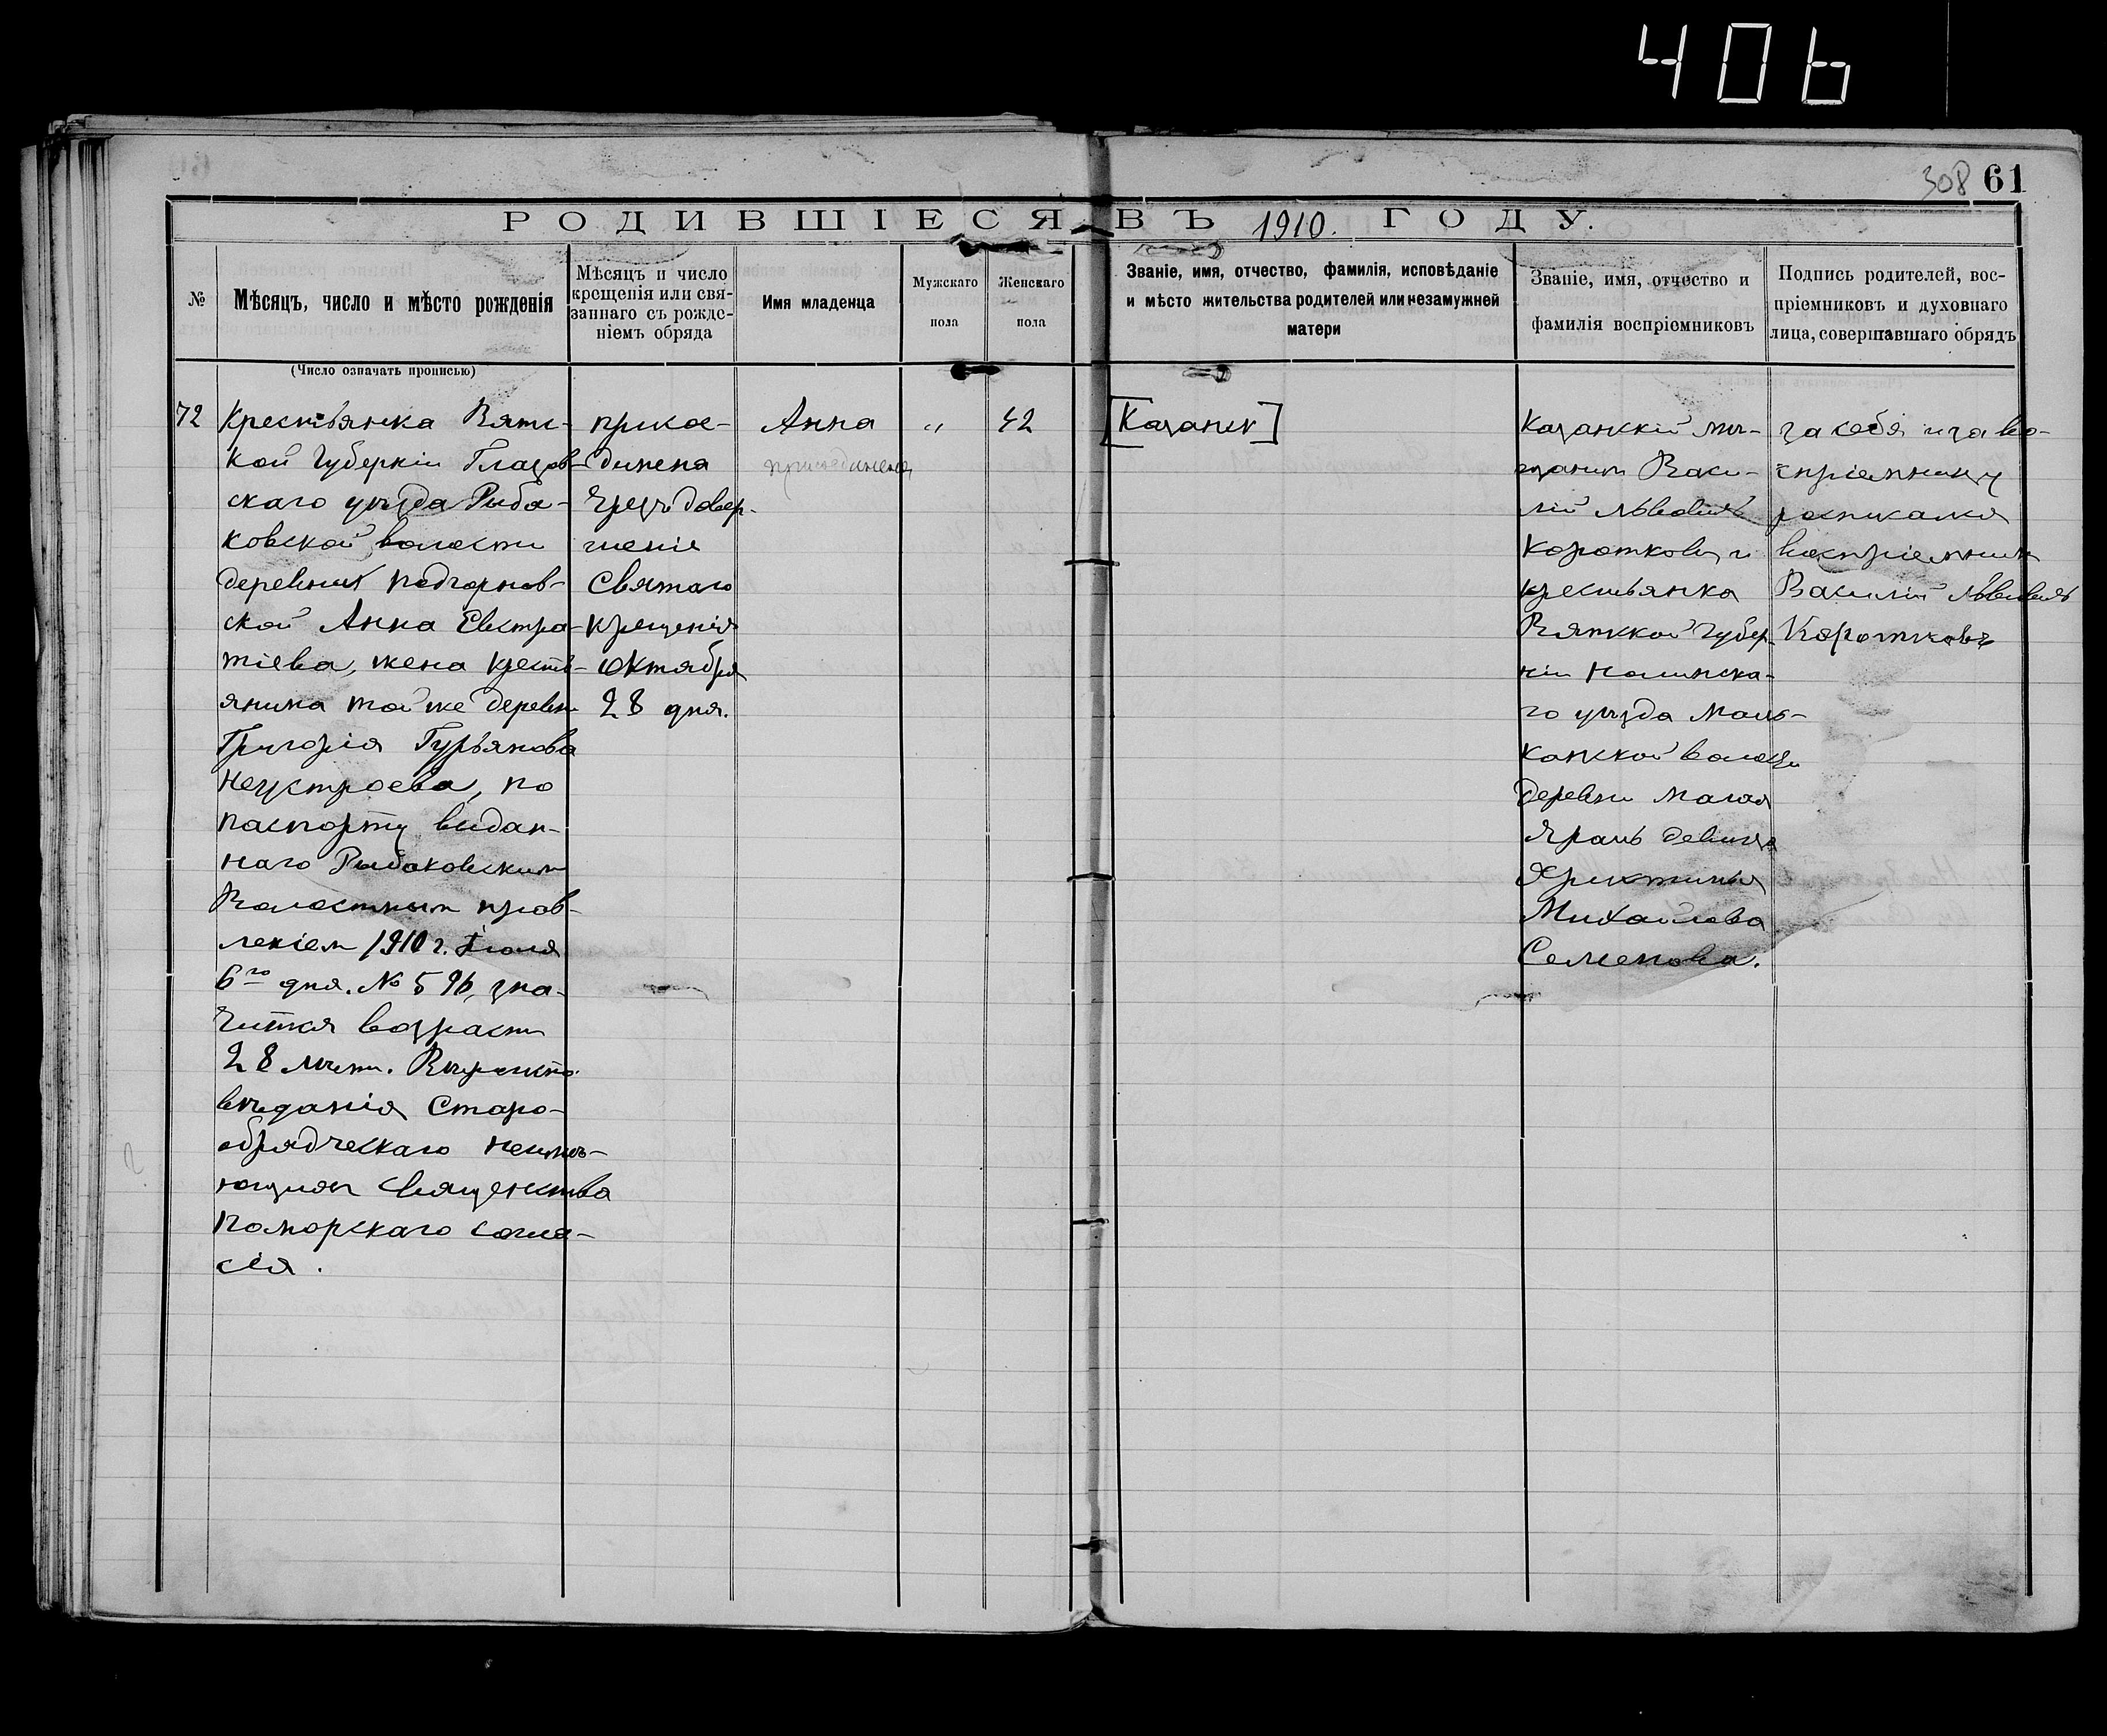 406
308 61
РОДИВШІЕСЯ ВЪ 1910. ГОДУ.
№
Мѣсяцъ, число и мѣсто рожденія
Мѣсяцъ и число
крещенія или свя-
заннаго съ рожде-
ніемъ обряда
Имя младенца
Мужскаго
пола
Женскаго
пола
Званіе, имя, отчество, фамилія, исповѣданіе
и мѣсто жительства родителей или незамужней
матери
Званіе, имя, отчество и
фамилія воспріемниковъ
Подпись родителей, вос-
пріемниковъ и духовнаго
лица, совершавшаго обрядъ
(Число означать прописью)
72
Крестьянка Вятс-
кой Губерніи Глазов-
скаго уѣзда Рыба-
ковской волости
деревни Подгорнов-
ской Анна Евстра-
тіева, жена кресть-
янина той же деревни
Григорія Гурьянова
Неустроева, по
паспорту выдан-
наго Рыбаковским
Волостным прав-
леніем 1910 г. Іюля
6го дня. № 596, зна-
чится возраст
28 лѣт. Вѣроиспо-
вѣданія Старо-
обрядческаго неимѣ-
ющих священства
Поморскаго согла-
сія.
присое-
динена
чрезъ довер-
шеніе
Святаго
крещенія
Октября
28 дня.
Анна
присоединена
"
42
[Казанск]
Казанскій мѣ-
щанин Васи-
лій Львович
Коротков, и
крестьянка
Вятской Губер-
ніи Нолинска-
го уѣзда
волости
деревни Малая
Ярань девица
Христинья
Михайлова
Семенова.
за себя и за во-
спріемницу
росписался
воспріемник
Василій Львович
Коротковъ